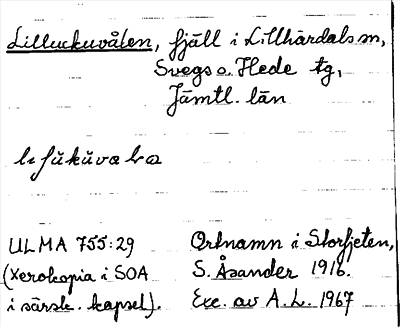 Lilluckuvålen, fjäll i Lillhärdals sn,
Svegs o. Hede tg,
Jämtl. län
ULMA 755:29
(Xerokopia i SOA
i särsk. kapsel).
Ortnamn i Storfjeten,
S. Åsander 1916.
Exc. av A.L. 1967